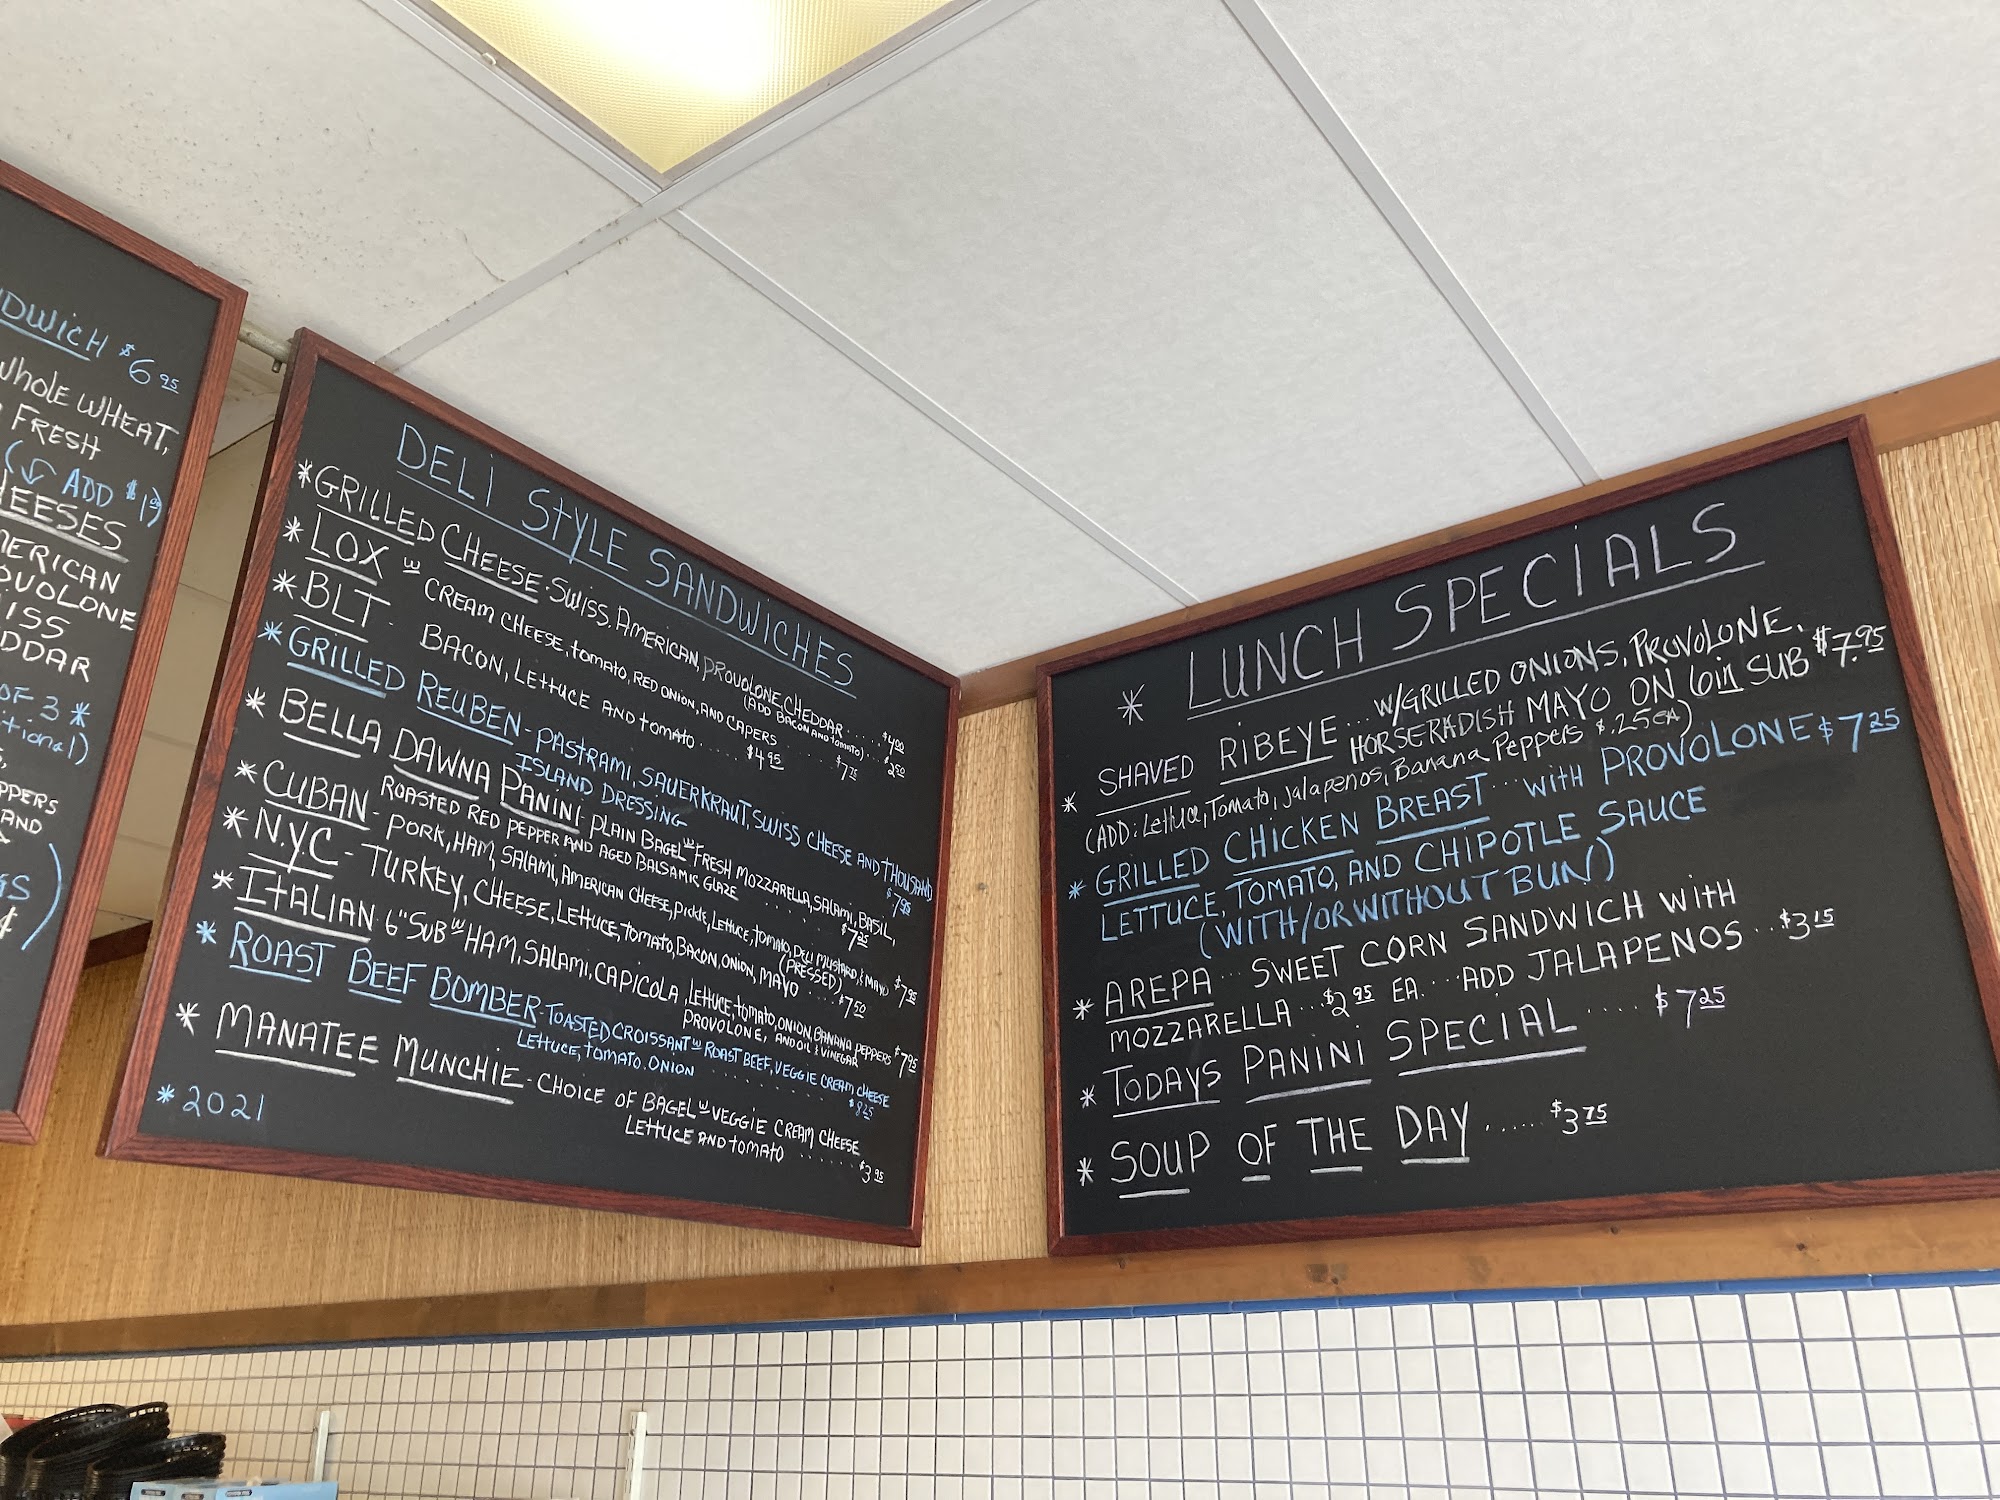 DWICH $6.95
WHOLE WHEAT,
FRESH
ADD $1
EESES
ERICAN
OVOLONE
ISS
DDAR
OF 3 *
tional)
PPERS
AND
DELI STYLE SANDWICHES
* GRILLED CHEESE - SWISS, AMERICAN, PROVOLONE, CHEDDAR ..... $4.00
(ADD BACON AND TOMATO) .. $2.50
* LOX W CREAM CHEESE, TOMATO, RED ONION, AND CAPERS ....
* BLT - BACON, LETTUCE AND TOMATO ..... $4.95
* GRILLED REUBEN - PASTRAMI, SAUERKRAUT, SWISS CHEESE AND THOUSAND
ISLAND DRESSING $7.95
* BELLA DAWNA PANINI - PLAIN BAGEL W FRESH MOZZARELLA, SALAMI, BASIL,
ROASTED RED PEPPER AND AGED BALSAMIC GLAZE ..... $7.25
* CUBAN - PORK, HAM, SALAMI, AMERICAN CHEESE, PICKLE, LETTUCE, TOMATO, DELI MUSTARD, & MAYO $7.95
(PRESSED)
* N.Y.C - TURKEY, CHEESE, LETTUCE, TOMATO, BACON, ONION, MAYO ..... $7.50
* ITALIAN - 6" SUB W HAM, SALAMI, CAPICOLA, LETTUCE, TOMATO, ONION, BANANA PEPPERS $7.95
PROVOLONE, AND OIL & VINEGAR
* ROAST BEEF BOMBER - TOASTED CROISSANT W ROAST BEEF, VEGGIE CREAM CHEESE
LETTUCE, TOMATO. ONION .......... $8.25
* MANATEE MUNCHIE - CHOICE OF BAGEL W VEGGIE CREAM CHEESE
LETTUCE AND TOMATO ...... $3.95
* 2021
* LUNCH SPECIALS
* SHAVED RIBEYE... W/GRILLED ONIONS, PROVOLONE,
HORSERADISH MAYO ON 6in SUB $7.95
(ADD: Lettuce, Tomato, Jalapenos, Banana Peppers $.25 EA)
* GRILLED CHICKEN BREAST ... with PROVOLONE $7.25
LETTUCE, TOMATO, AND CHIPOTLE SAUCE
(WITH/OR WITHOUT BUN)
* AREPA ... SWEET CORN SANDWICH WITH
MOZZARELLA ... $2.95 EA. ... ADD JALAPENOS ... $3.15
* TODAYS PANINI SPECIAL ..... $7.25
* SOUP OF THE DAY ...... $3.75